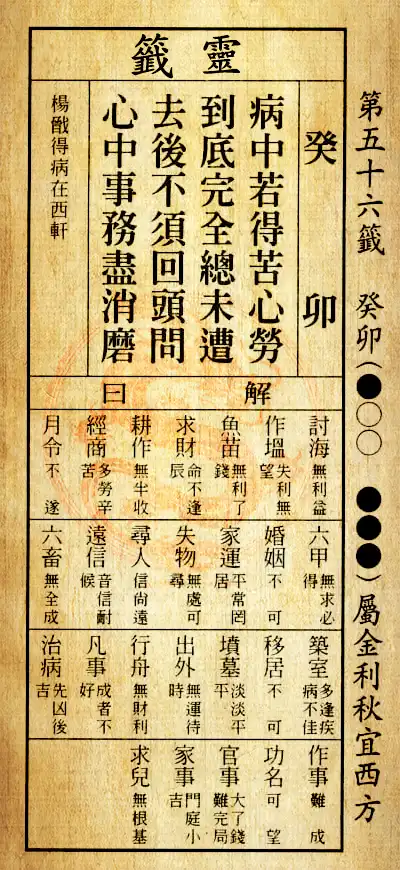 第五十六籤 癸卯(●○○ ●●●)屬金利秋宜西方
靈籤
癸卯
病中若得苦心勞
到底完全總未遭
去後不須回頭問
心中事務盡消磨
楊戩得病在西軒
解曰
討海 無利益
作塭 失利無望
魚苗 無利了錢
求財 命不逢辰
耕作 無牛收
經商 多勞辛苦
月令 不遂
六甲 無求必得
婚姻 不可
家運 平常罔居
失物 無處可尋
尋人 信尚遠
遠信 音信耐候
六畜 無全成
築室 多逢疾病不佳
移居 不可
墳墓 淡淡平平
出外 無運待時
行舟 無財利
凡事 成者不好
治病 先凶後吉
作事 難成
功名 可望
官事 大了錢難完局
家事 門庭小吉
求兒 無根基